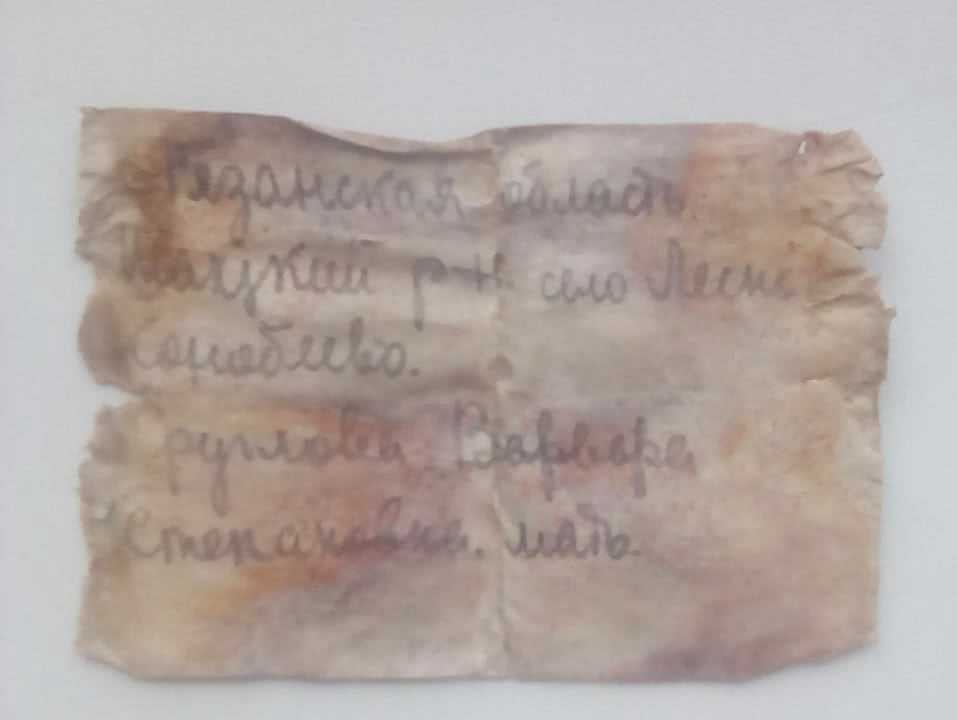 Рязанская область
Шацкий р-н село Лесно
Конобеево.
Круглова Варвара
Степановна. мать.